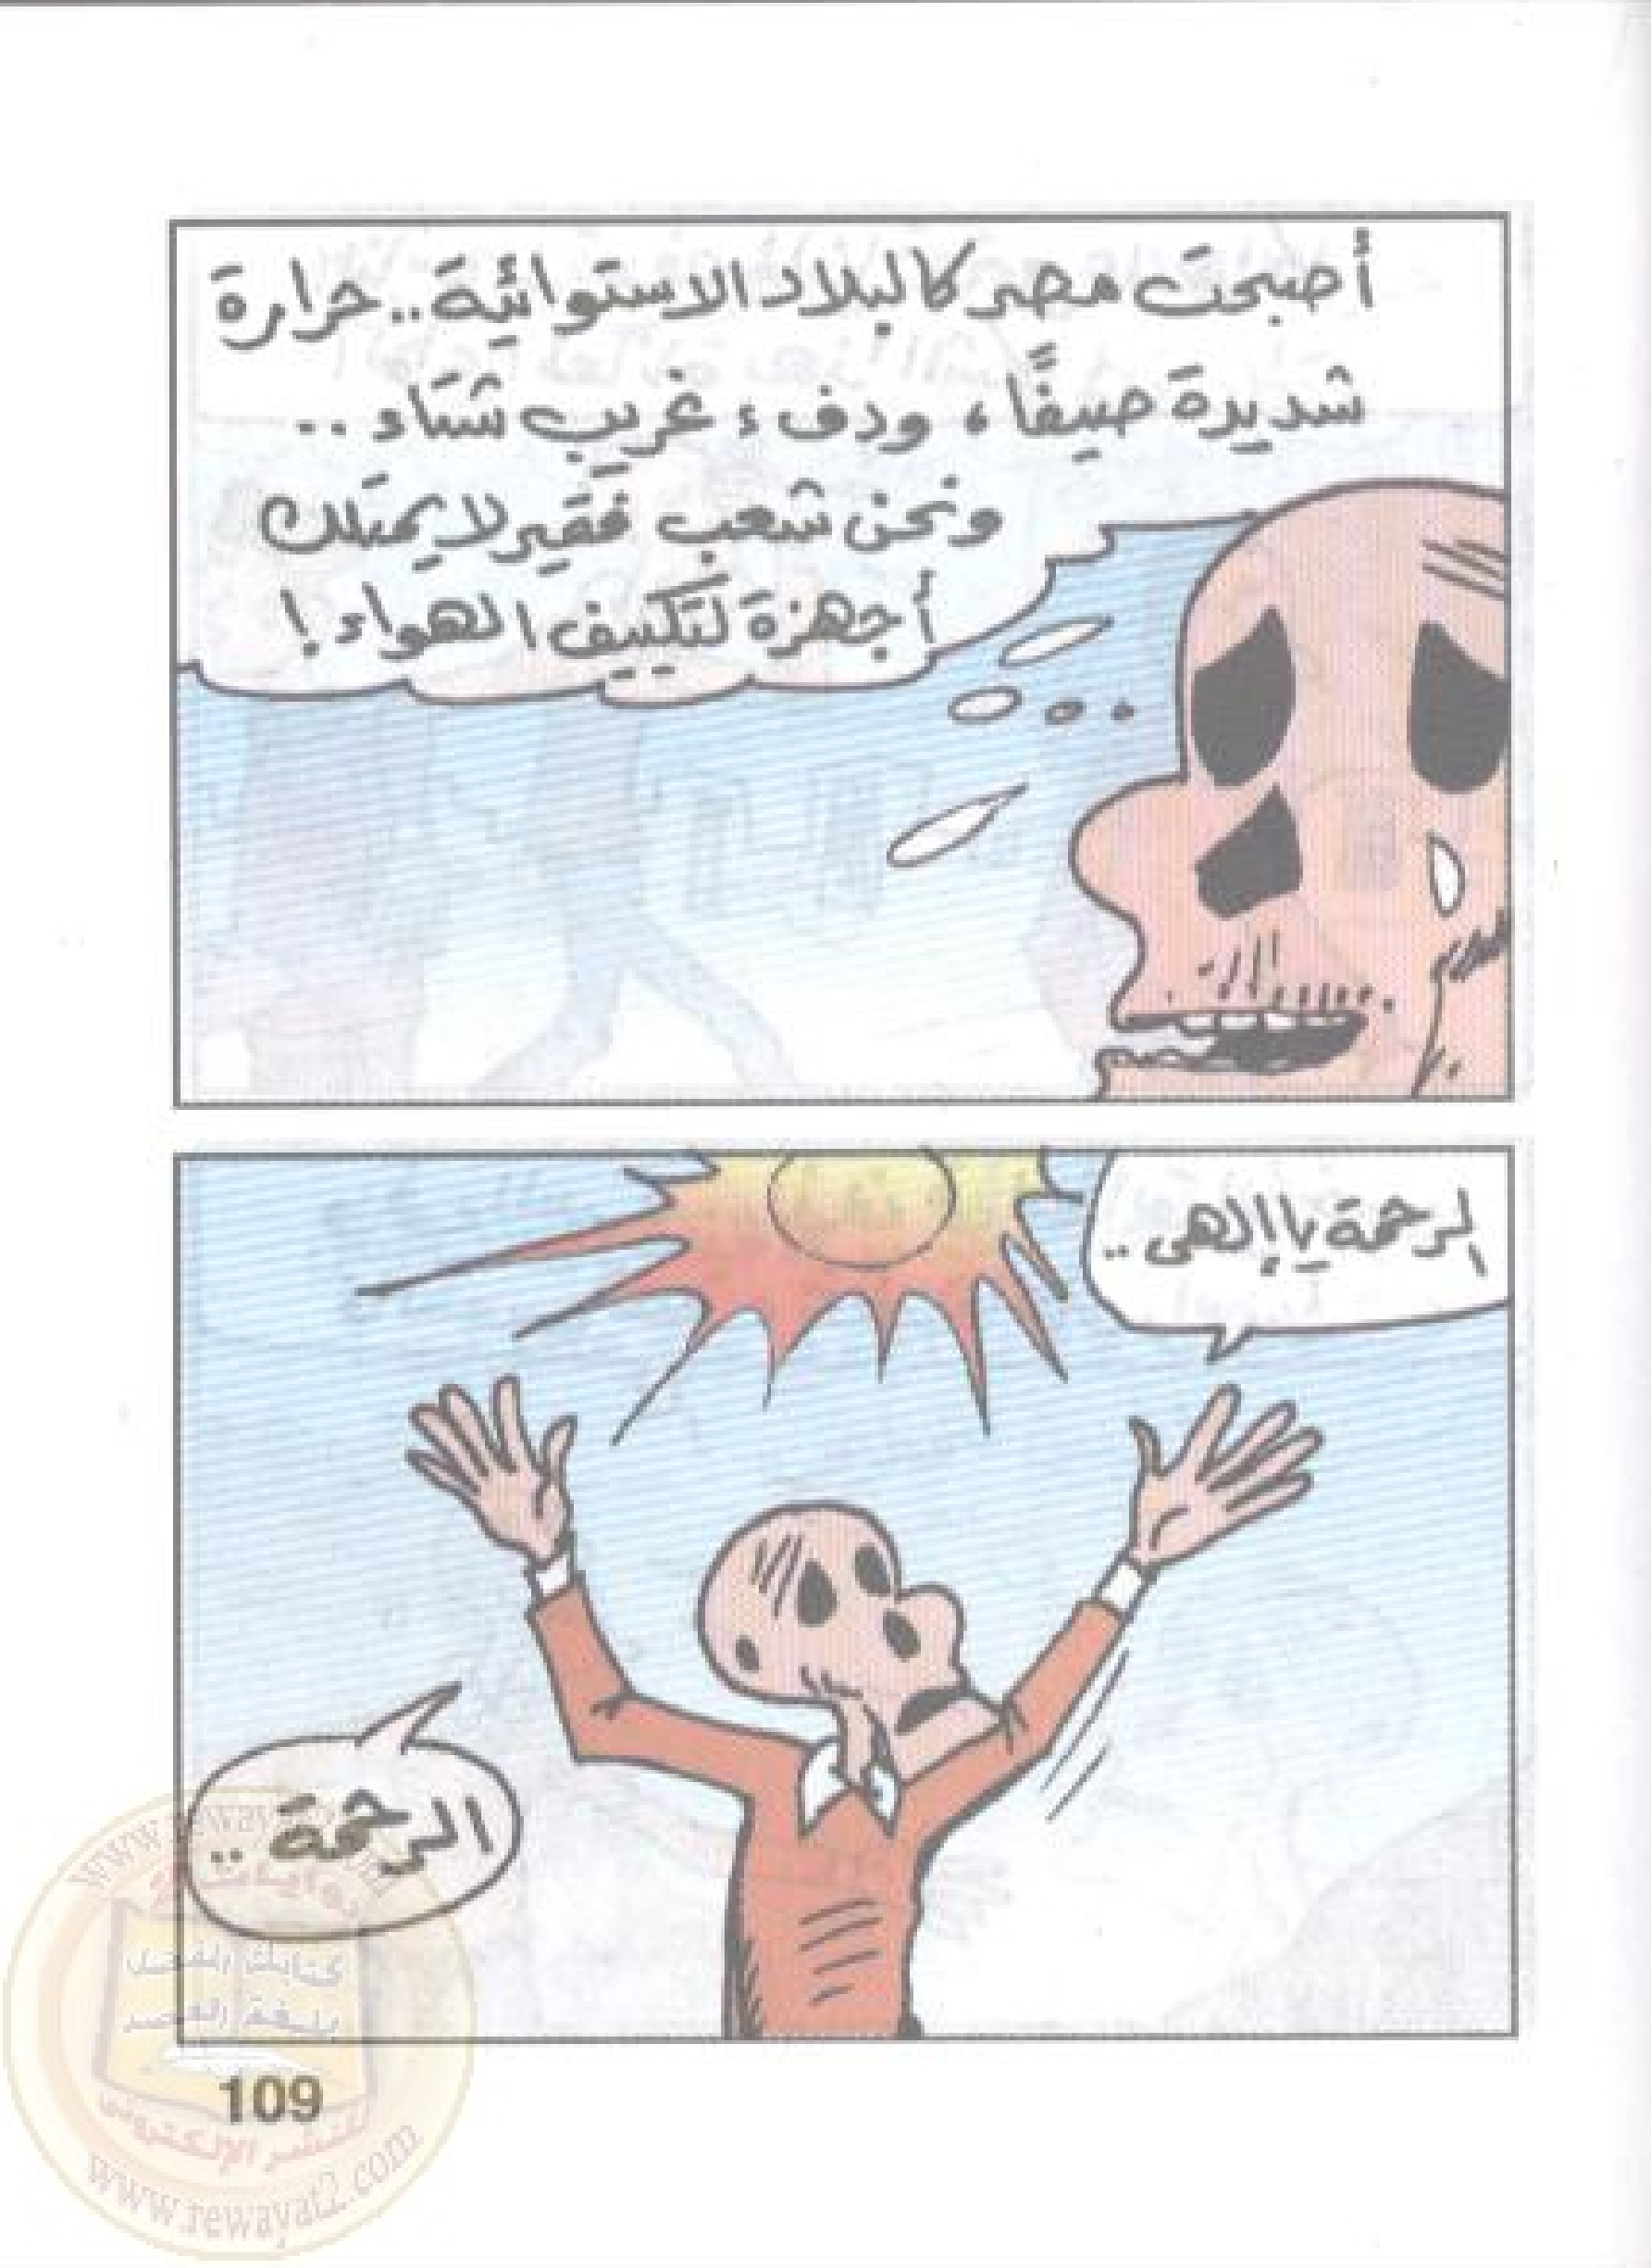 أصبحت مصر كالبلاد الاستوائية.. حرارة
شديرة صيفًا، ودفء غريب شتاء..
ونحن شعب فقير لا يمتلك
أجهزة لتكييف الهواء!
الرحمة يا إلهى..
الرحمة..
كتابك المفضل
109
للنشر الإلكترونى
www.rewayat2.com